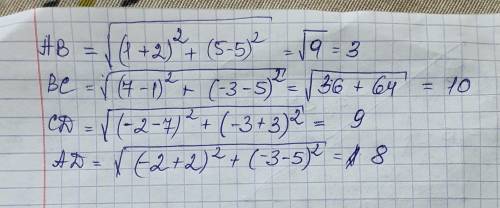 AB = √((1+2)² + (5-5)²) = √9 = 3
BC = √((7-1)² + (-3-5)²) = √(36 + 64) = 10
CD = √((-2-7)² + (-3+3)²) = 9
AD = √((-2+2)² + (-3-5)²) = 8